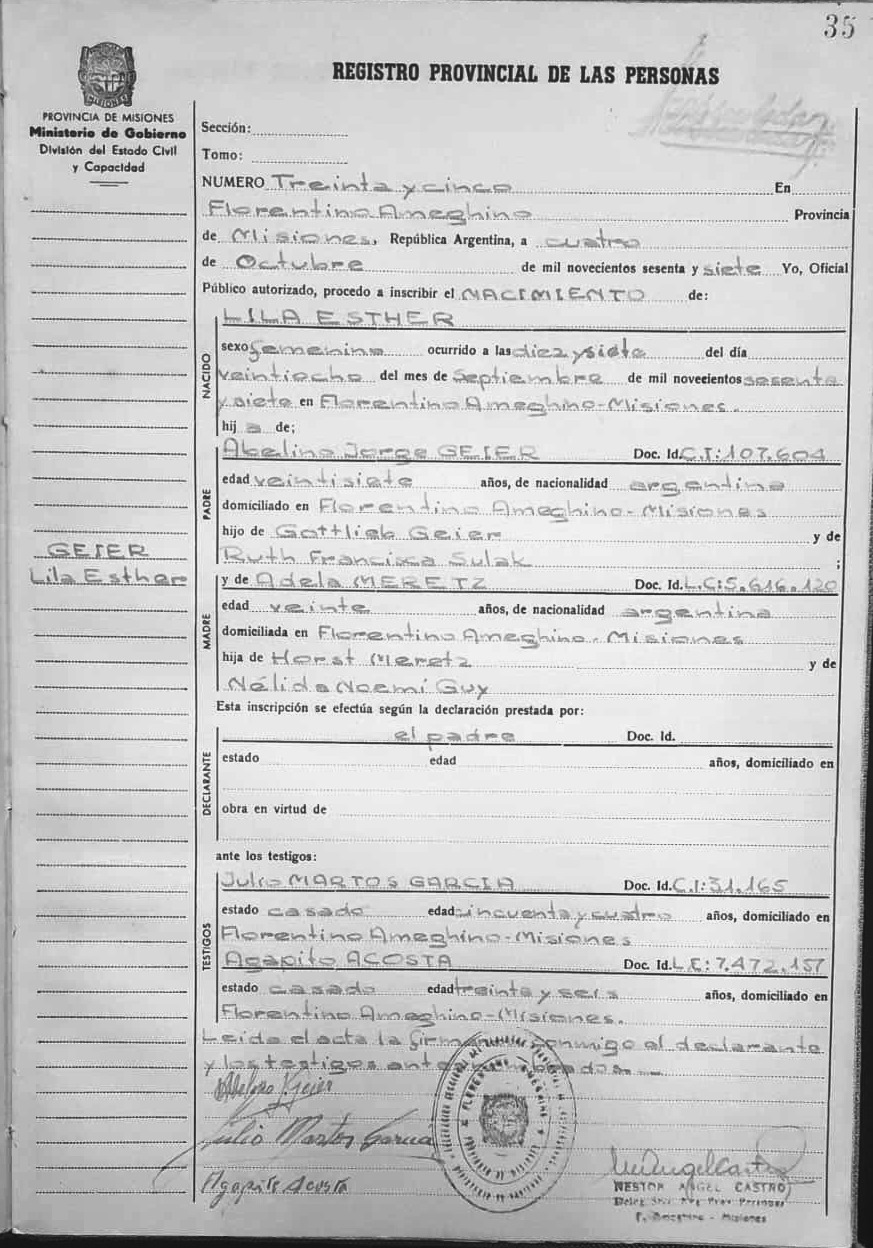 35
REGISTRO PROVINCIAL DE LAS PERSONAS
PROVINCIA DE MISIONES
Ministerio de Gobierno
División del Estado Civil
y Capacidad
Sección:
Tomo:
NUMERO Treinta y cinco En
Florentino Ameghino Provincia
de Misiones, República Argentina, a cuatro
de Octubre de mil novecientos sesenta y siete Yo, Oficial
Público autorizado, procedo a inscribir el NACIMIENTO de:
LILA ESTHER
NACIDO
sexo femenino ocurrido a las diez y siete del día
veintiocho del mes de Septiembre de mil novecientos sesenta
y siete en Florentino Ameghino-Misiones.
hij a de;
PADRE
Abelino Jorge GEIER Doc. Id. C.I:107.604
edad veintisiete años, de nacionalidad argentina
domiciliado en Florentino Ameghino-Misiones
hijo de Gottlieb Geier y de
Ruth Francisca Sulak ;
GEIER
Lila Esther
MADRE
y de Adela MERETZ Doc. Id. L.C:5.616.120
edad veinte años, de nacionalidad argentina
domiciliada en Florentino Ameghino-Misiones
hija de Horst Meretz y de
Nélida Noemí Guy
Esta inscripción se efectúa según la declaración prestada por:
DECLARANTE
el padre Doc. Id.
estado edad años, domiciliado en
obra en virtud de
ante los testigos:
TESTIGOS
Julio MARTOS GARCIA Doc. Id. C.I:31.165
estado casado edad cincuenta y cuatro años, domiciliado en
Florentino Ameghino-Misiones
Agapito ACOSTA Doc. Id. L.E:7.472.157
estado casado edad treinta y seis años, domiciliado en
Florentino Ameghino-Misiones.
Leida el acta la firman conmigo el declarante
y los testigos
Geier
Julio Martos Garcia
Agapito Acosta
FLORENTINO AMEGHINO
PROVINCIA DE MISIONES
NESTOR ANGEL CASTRO
F. Ameghino - Misiones